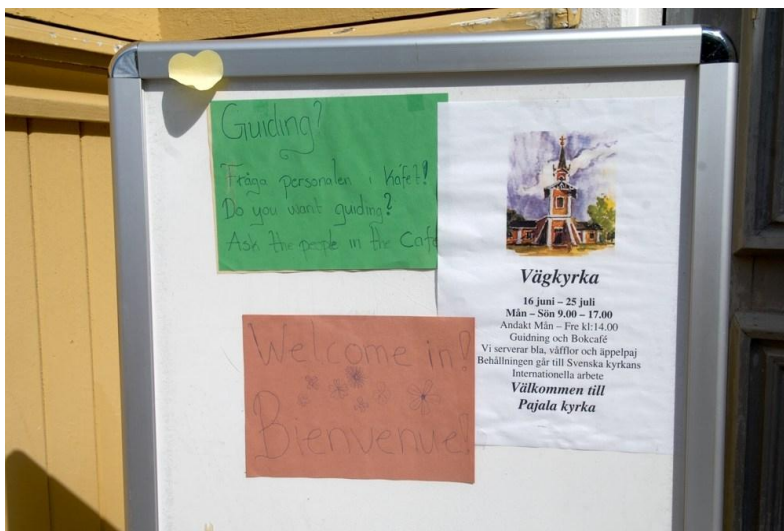 Guiding?
Fråga personalen i Kafét!
Do you want guiding?
Ask the people in the Café
Vägkyrka
16 juni – 25 juli
Mån – Sön 9.00 – 17.00
Andakt Mån – Fre kl:14.00
Guidning och Bokcafé
Vi serverar bla, våfflor och äppelpaj
Behållningen går till Svenska kyrkans
Internationella arbete
Välkommen till
Pajala kyrka
Welcome in!
Bienvenue!